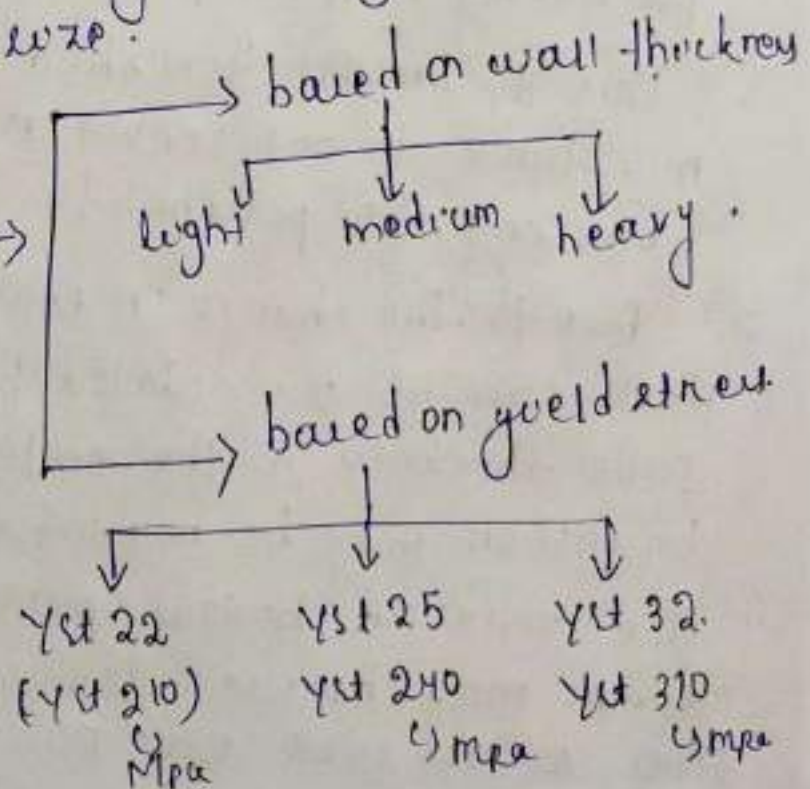 size.
based on wall thickness
light medium heavy.
based on yield stress.
Yst 22 Yst 25 Yst 32.
(Yst 210) Yst 240 Yst 310
Mpa Mpa Mpa